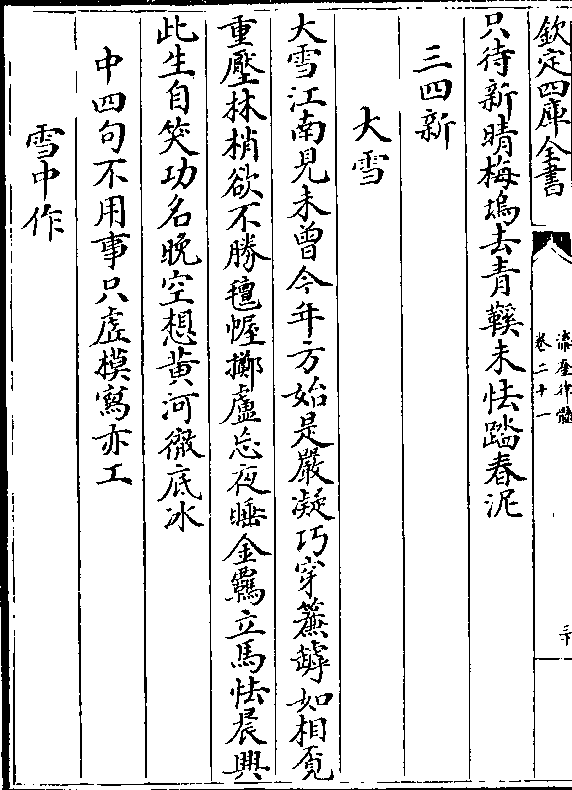 欽定四庫全書
瀛奎律髓
卷二十一
只待新晴梅塢去青鞵未怯踏春泥
三四新
大雪
大雪江南見未曾今年方始是嚴凝巧穿簾罅如相覓
重壓林梢欲不勝氊幄擲盧忘夜睡金羈立馬怯晨興
此生自笑功名晚空想黄河徹底冰
中四句不用事只虚模寫亦工
雪中作